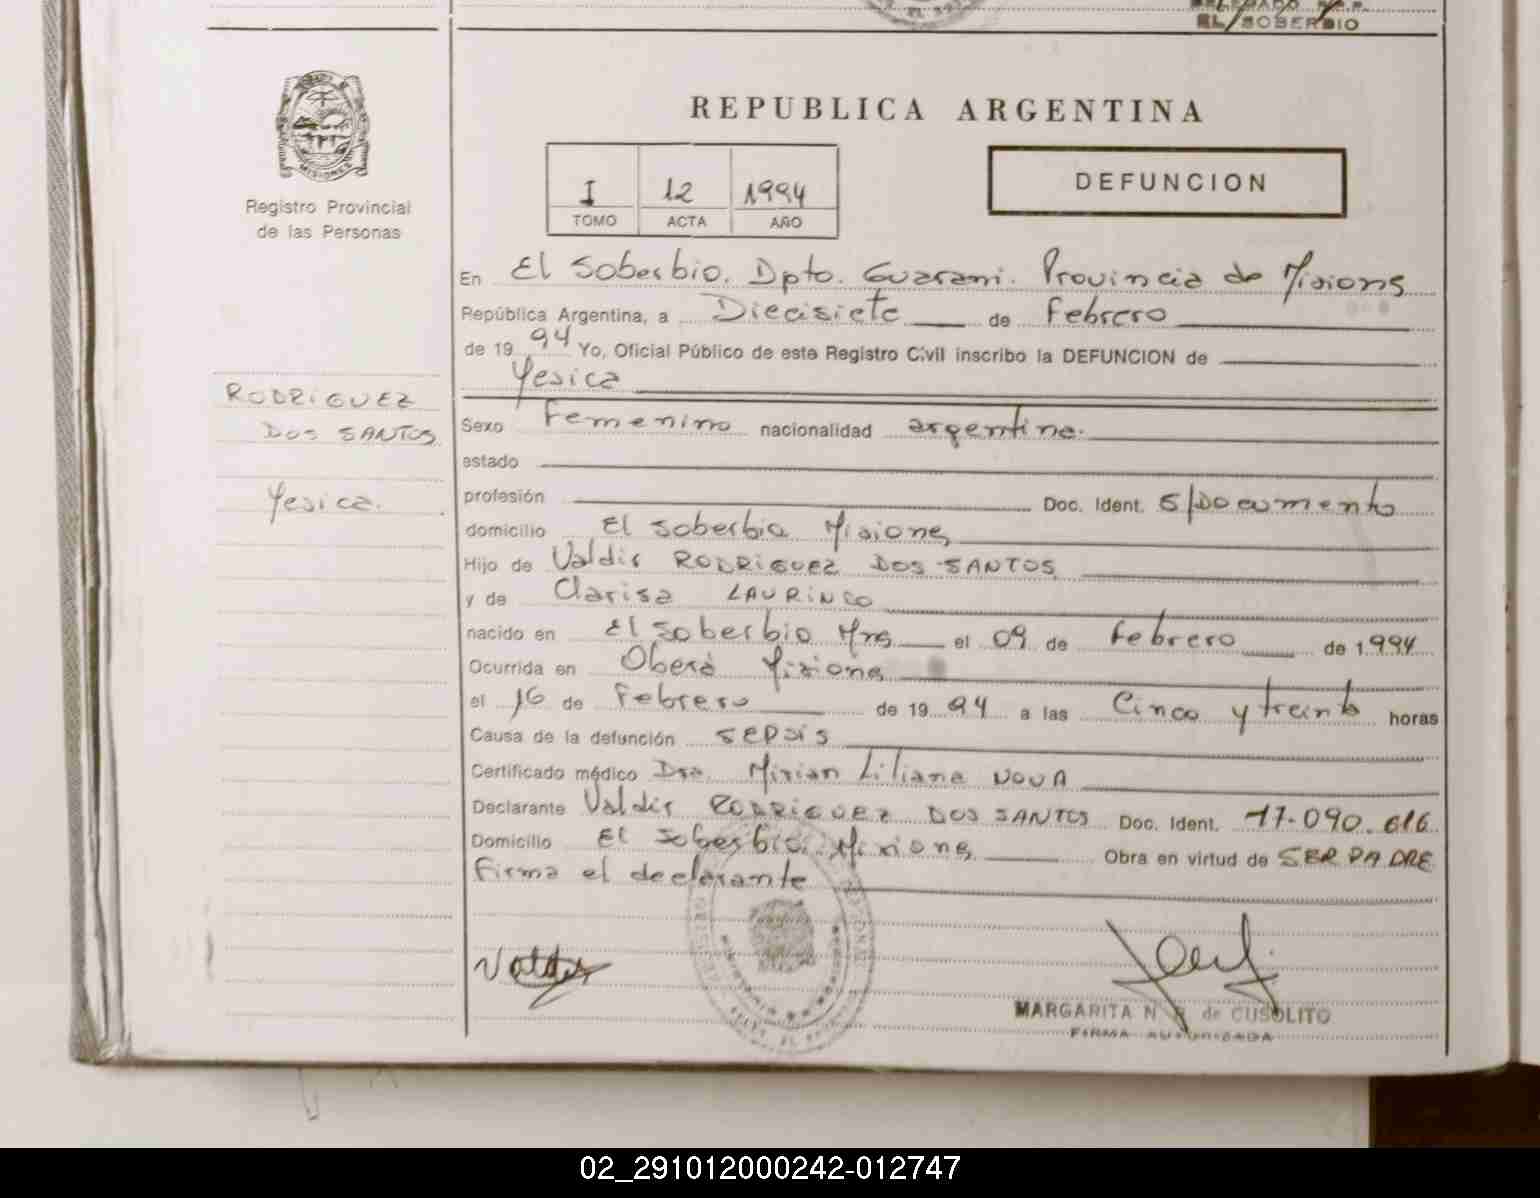 EL SOBERBIO
REPUBLICA ARGENTINA
I 12 1994
TOMO ACTA AÑO
DEFUNCION
MISIONES
Registro Provincial
de las Personas
En El Soberbio. Dpto. Guarani. Provincia de Misiones
República Argentina, a Diecisiete de Febrero
de 19 94 Yo, Oficial Público de este Registro Civil inscribo la DEFUNCION de
Yesica
RODRIGUEZ
DOS SANTOS
Yesica.
Sexo Femenino nacionalidad argentina.
estado
profesión Doc. Ident. S/Documento
domicilio El Soberbio Misiones
Hijo de Valdir RODRIGUEZ DOS SANTOS
y de Clarisa
nacido en El Soberbio Mns el 09 de Febrero de 1.994
Ocurrida en Oberá Misiones
el 16 de Febrero de 19 94 a las Cinco y treinta horas
Causa de la defunción SEPSIS
Certificado médico Dra. Mirian Liliana NOVA
Declarante Valdir RODRIGUEZ DOS SANTOS Doc. Ident. 17.090.616
Domicilio El Soberbio. Misiones Obra en virtud de SER PADRE
Firma el declarante
Valdir
MARGARITA N. R. de CUSOLITO
FIRMA AUTORIZADA
02_291012000242-012747